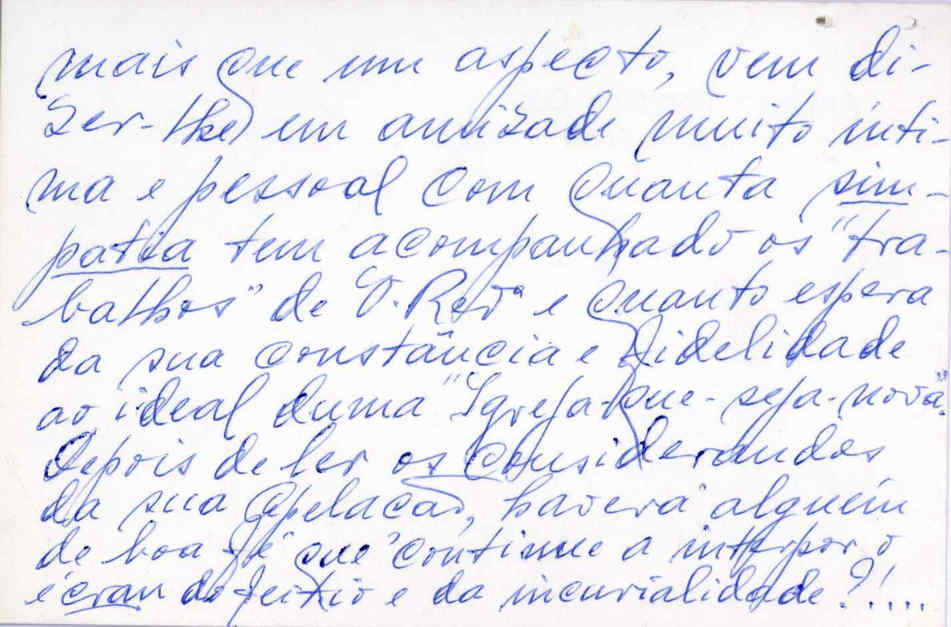 mais que um aspecto, vem di-
zer-lhe em amizade muito ínti-
ma e pessoal com quanta sim-
patia tem acompanhado os "tra-
balhos" de V. Revª e quanto espera
da sua constância e fidelidade
ao ideal duma "Igreja-que-seja-nova".
Depois de ler os considerandos
da sua apelação, haverá alguém
de boa-fé que continue a interpor o
écran do feitio e da incurialidade?!....